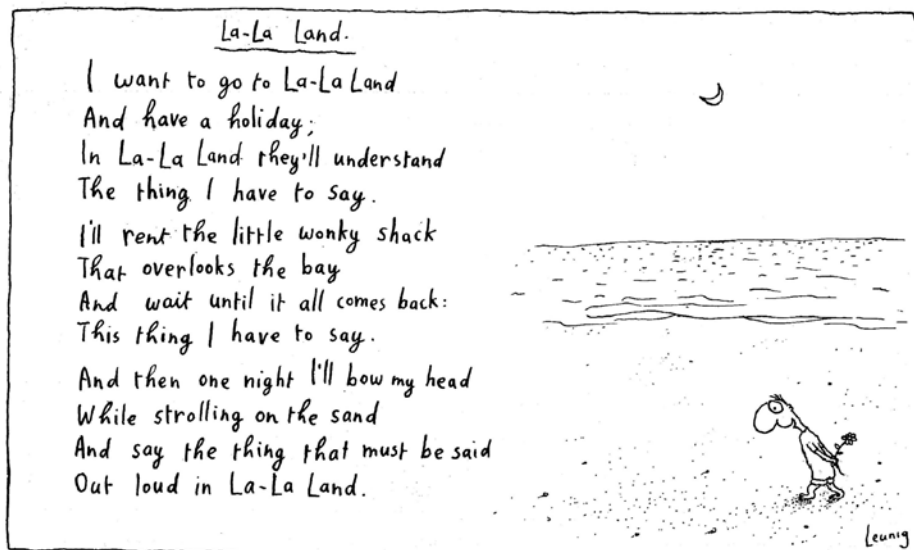 La-La Land.
I want to go to La-La Land
And have a holiday;
In La-La Land they'll understand
The thing I have to say.
I'll rent the little wonky shack
That overlooks the bay
And wait until it all comes back:
This thing I have to say.
And then one night I'll bow my head
While strolling on the sand
And say the thing that must be said
Out loud in La-La Land.
Leunig